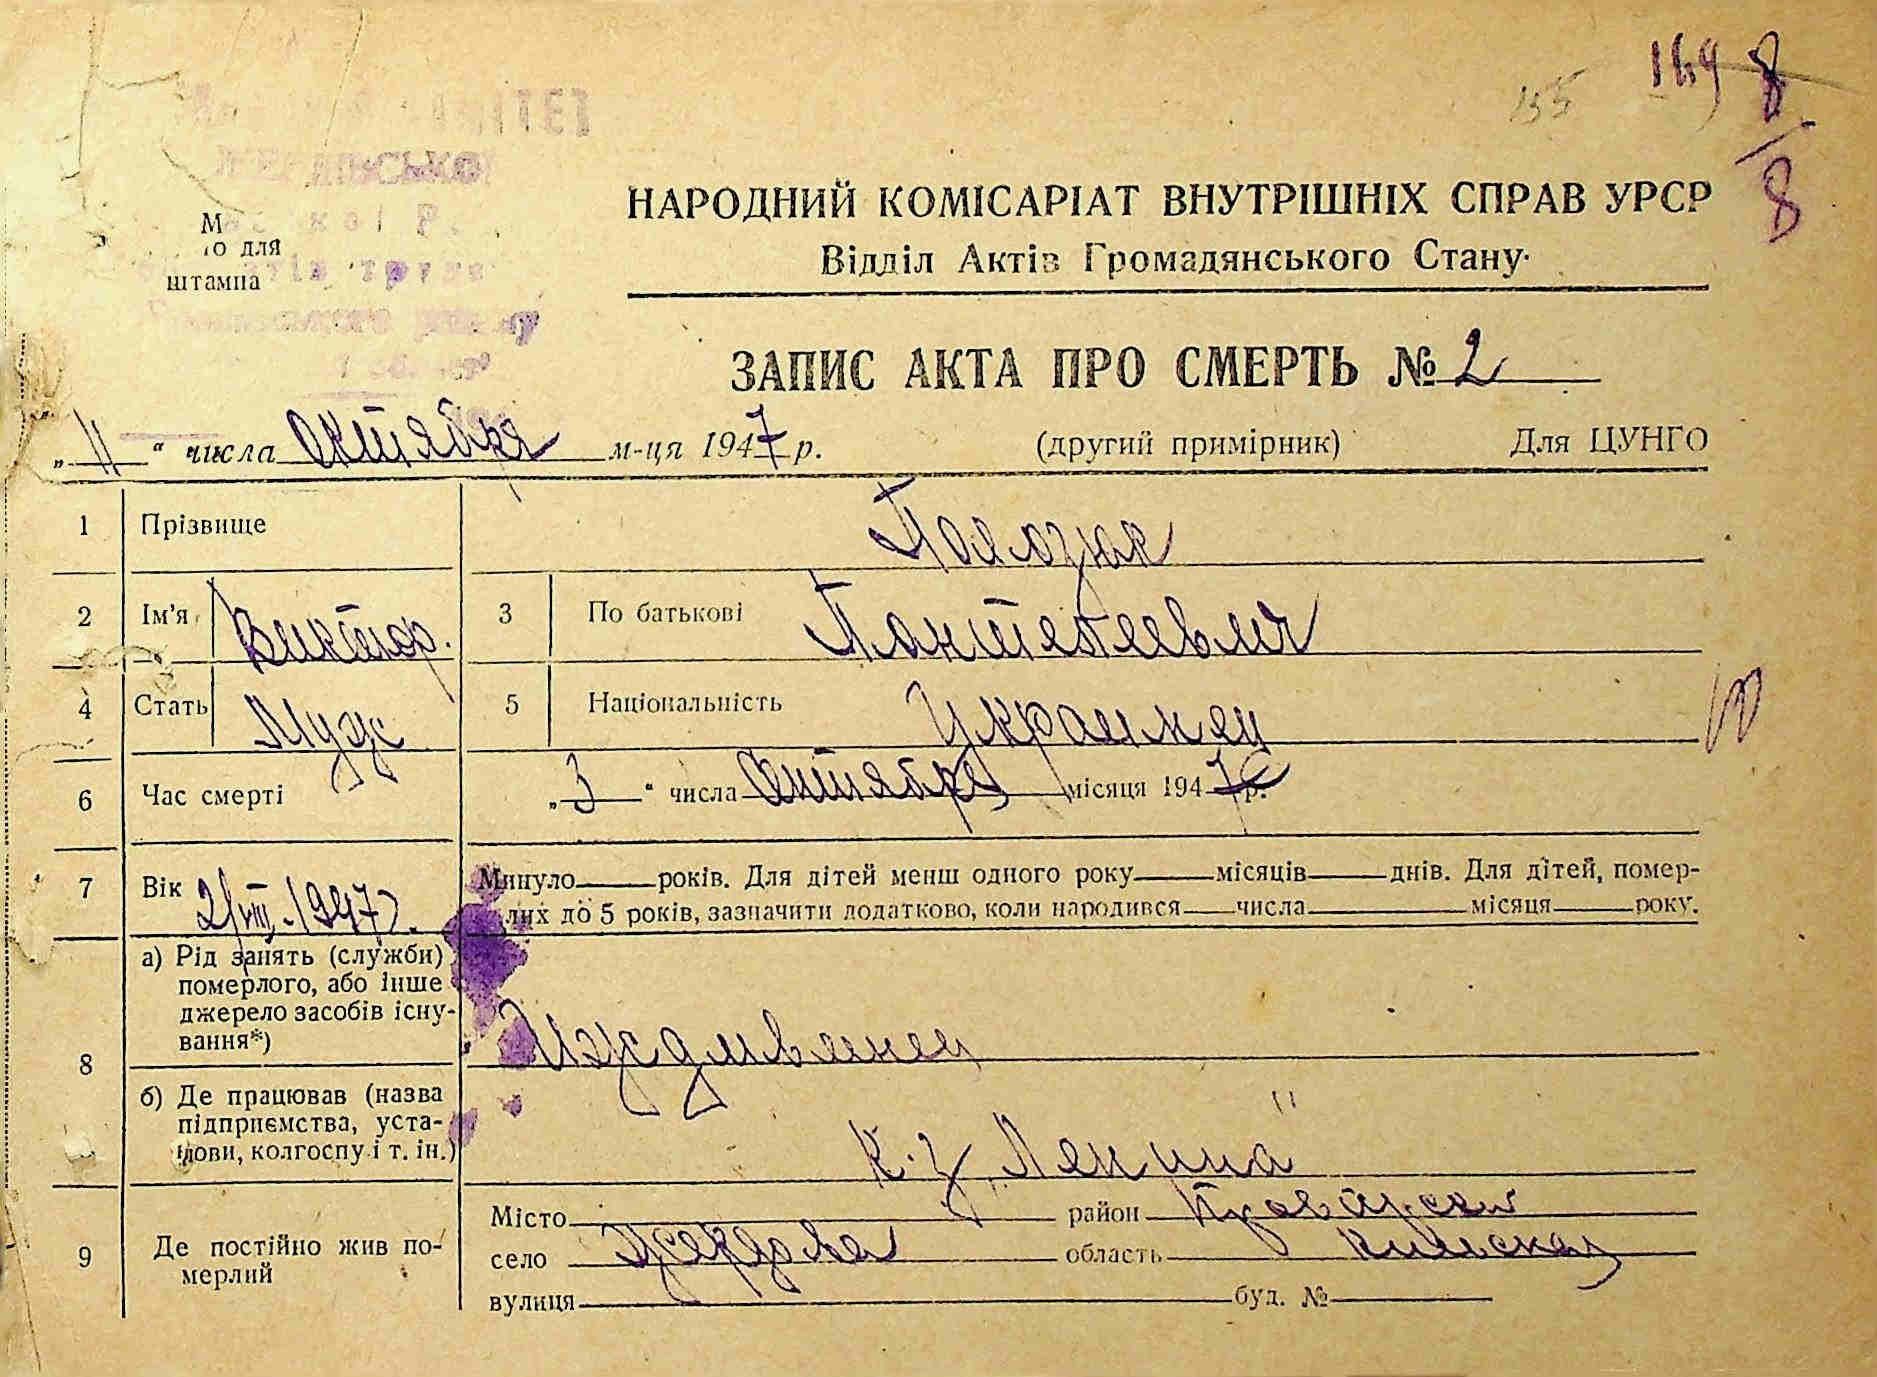 149 8
155
8
М
о для
штампа
НАРОДНИЙ КОМІСАРІАТ ВНУТРІШНІХ СПРАВ УРСР
Відділ Актів Громадянського Стану
ЗАПИС АКТА ПРО СМЕРТЬ № 2
„11“ числа октября м-ця 1947 р. (другий примірник) Для ЦУНГО
1 Прізвище
2 Ім'я Виктор. 3 По батькові Пантелеевич
4 Стать Муж 5 Національність Украинец
6 Час смерті „3“ числа октября місяця 1947 р.
7 Вік 2/VIII-1947 г. Минуло___років. Для дітей менш одного року___місяців___днів. Для дітей, помер-
лих до 5 років, зазначити додатково, коли народився___числа___місяця___року.
8 а) Рід занять (служби)
померлого, або інше
джерело засобів існу-
вання*)
Иждивенец
б) Де працював (назва
підприємства, уста-
нови, колгоспу і т. ін.)
К-з „Ленина"
9 Де постійно жив по-
мерлий
Місто___ район
село Жердова область Киевская
вулиця___ буд. №___